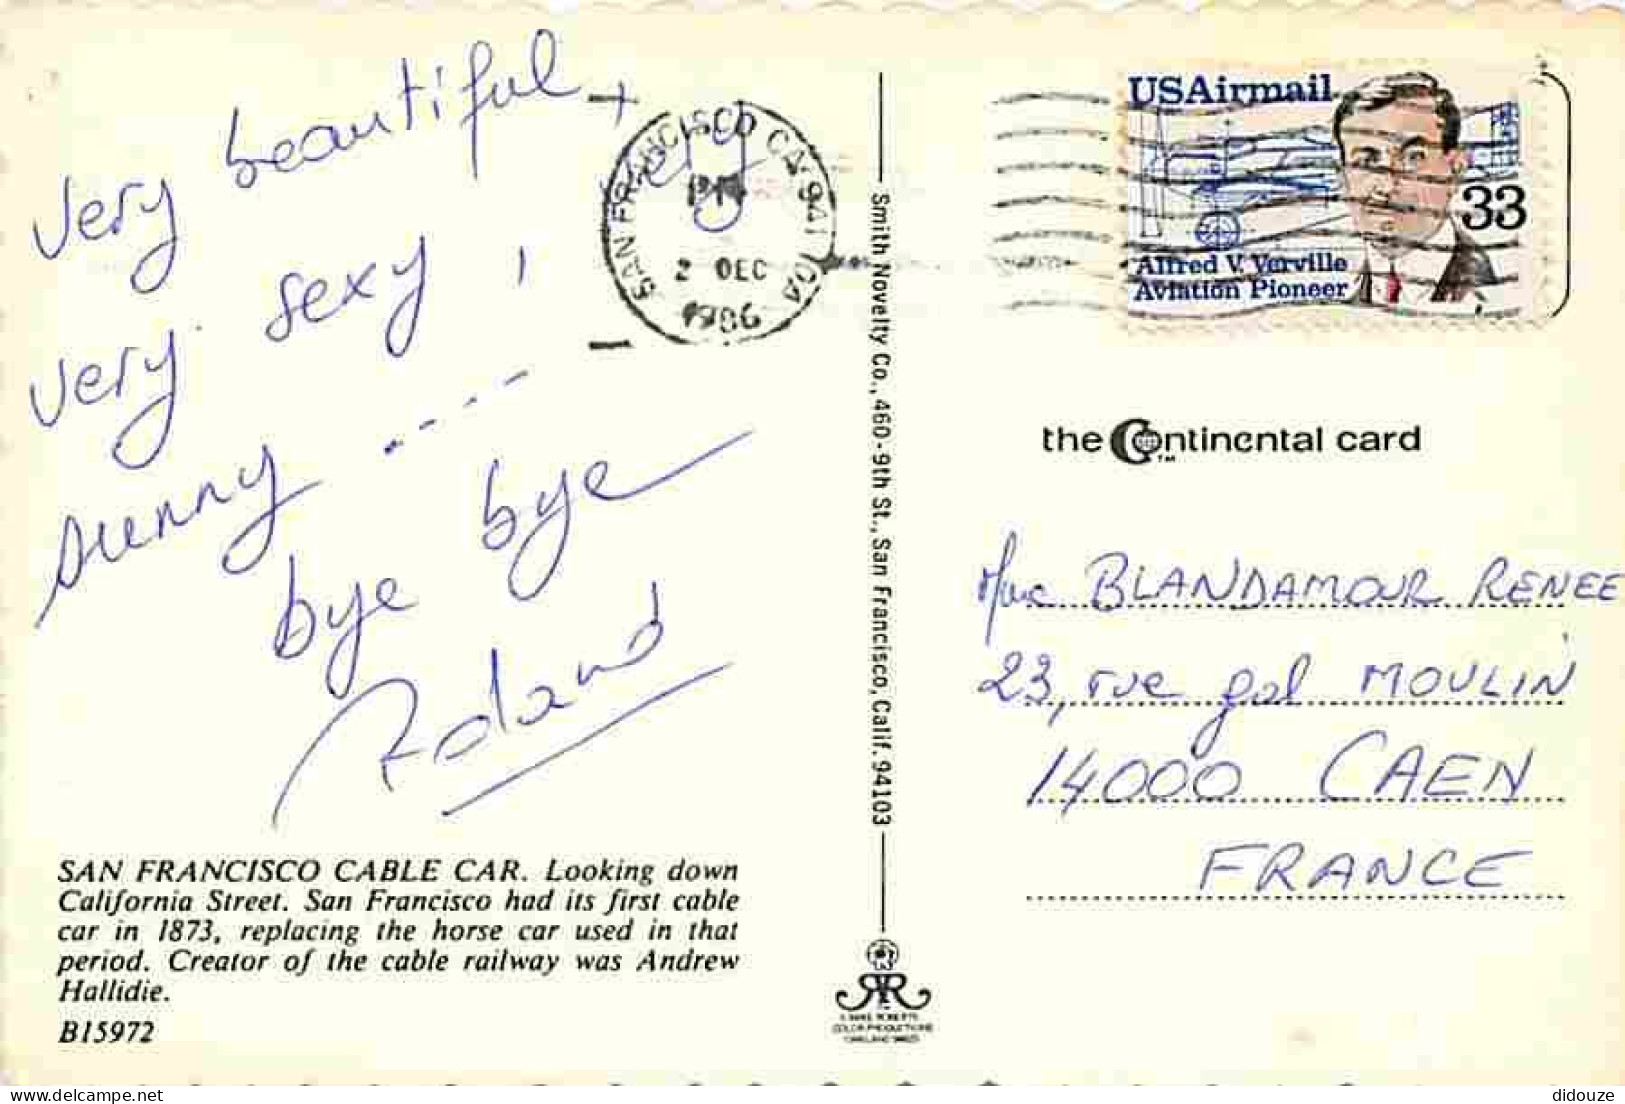 very beautiful +
very sexy !
very
sunny ----
bye bye
Roland
SAN FRANCISCO CABLE CAR. Looking down
California Street. San Francisco had its first cable
car in 1873, replacing the horse car used in that
period. Creator of the cable railway was Andrew
Hallidie.
B15972
SAN FRANCISCO CA 941
PM
2 DEC
1986
Smith Novelty Co., 460-9th St., San Francisco, Calif. 94103
USAirmail
33
Alfred V. Verville
Aviation Pioneer
the Continental card
TM
Mme BLANDAMOUR RENEE
23, rue gal MOULIN
14000 CAEN
FRANCE
COLOR PRODUCTIONS
didouze